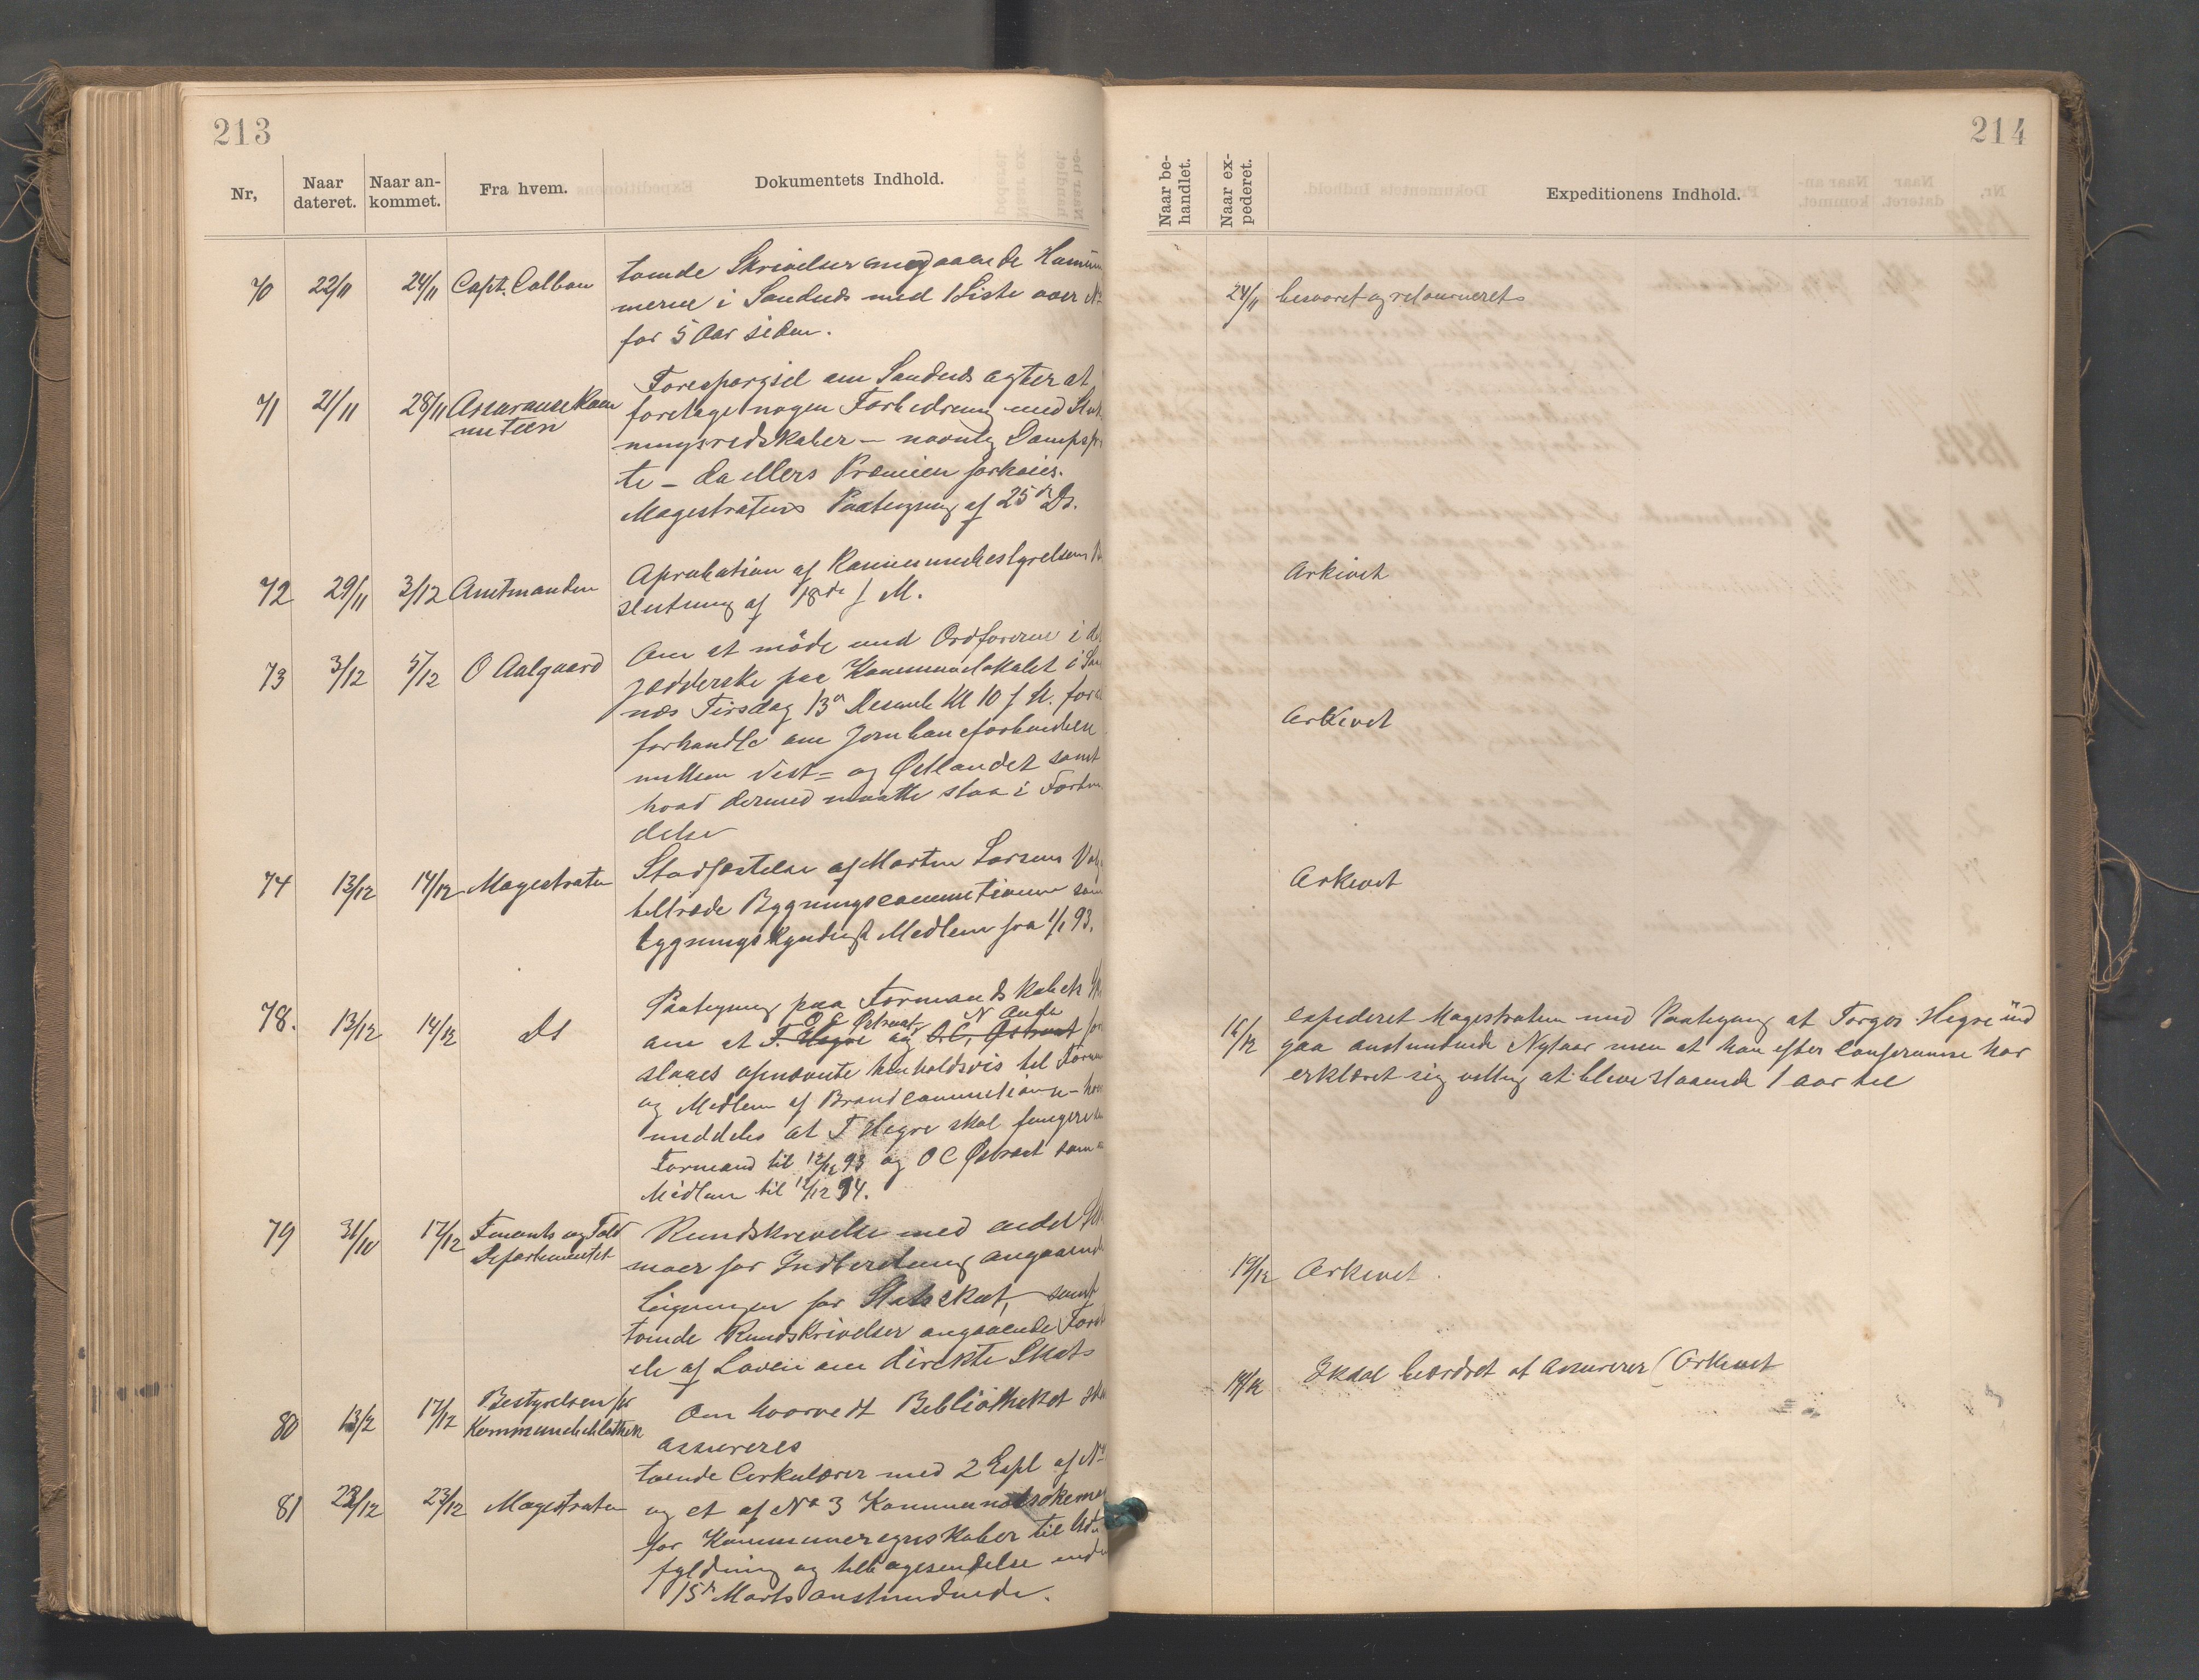 213
Nr,
Naar dateret.
Naar an-kommet.
Fra hvem.
Dokumentets Indhold.
70 22/11 24/11 Capt. Colban
tvende Skrivelser angaaende
merne i Sandnæs med 1 Liste over No
for 5 Aar siden.
71 21/11 28/11 Assurancekom
miteen
Forespørgsel om Sandnæs agter at
foretage nogen Forbedring med Sluk
ningsredskaber - navnlig Dampsprø
te - da ellers Præmien forhøies.
Magistratens Paategning af 25de Ds.
72 29/11 3/12 Amtmanden
Aprobation af Kommunebestyrelsens Be
slutning af 18de f M.
73 3/12 5/12 O Aalgaard
Om at møde med Ordførerne i de
jædderske paa Kommunelokalet i San
næs Tirsdag 13de Decemb Kl 10 f M. for a
forhandle om Jernbaneforbindelse
mellem Vest= og Østlandet samt
hvad dermed maatte staa i Forbin
delse
74 13/12 14/12 Magistraten
Stadfæstelse af Morten Larsens Valg
tiltræde Bygningscommitionen som
bygningskyndigt Medlem fra 1/1 93.
78. 13/12 14/12 Ds
Paategning paa Formandskabets
O C Østraat N
om at T. Hegre og O.C. Østraat for
slaaes opnævnte henholdsvis til Form
og Medlem af Brandcommitionen - hvor
meddeles at T Hegre skal fungere som
Formand til 12/12 93 og O C Østraat som
Medlem til 12/12 94.
79 31/10 17/12 Finants og Told
Departementet
Rundskrivelse med endel
maer for Indberetning angaaende
Ligningen for Statsskat, samt
tvende Rundskrivelser angaaende Ford
ele af Loven om direkte Skats
80 13/12 17/12 Bestyrelsen for
Kommunebibliothek
Om hvorvidt Bibliotheket skal
assureres
81 22/12 23/12 Magistraten
tvende Cirkulærer med 2 Expl af No
og et af No 3 Kommunalskema
for Kommuneregnskaber til Ud
fyldning og tilbagesendelse inden
15de Marts anstundende.
214
Naar be-handlet.
Naar ex-pederet.
Expeditionens Indhold.
24/11 besvaret og returneret
Arkivet
Arkivet
Arkivet
16/12 expederet Magistraten med Paategning at Torger Hegre ud
gaar anstundende Nytaar men at han efter Conferanse har
erklæret sig villig at blive staaende 1 aar til
19/12 Arkivet.
19/12 Skaal beordret at assurerer (Arkivet